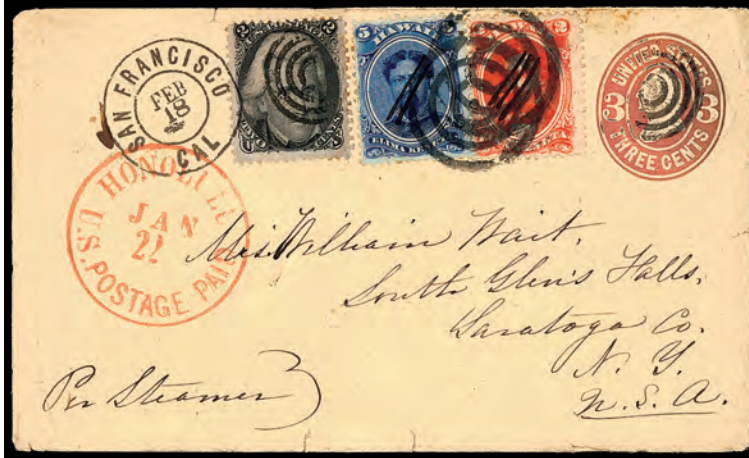 SAN FRANCISCO
FEB
18
CAL
2 2
TWO CENTS
5 HAWAII
ELIMA KE
2
UNITED STATES
3 3
THREE CENTS
HONOLULU
JAN
21
U.S. POSTAGE PAID
Mrs. William Wait,
South Glen's Falls,
Saratoga Co.
N. Y.
U. S. A.
Per Steamer